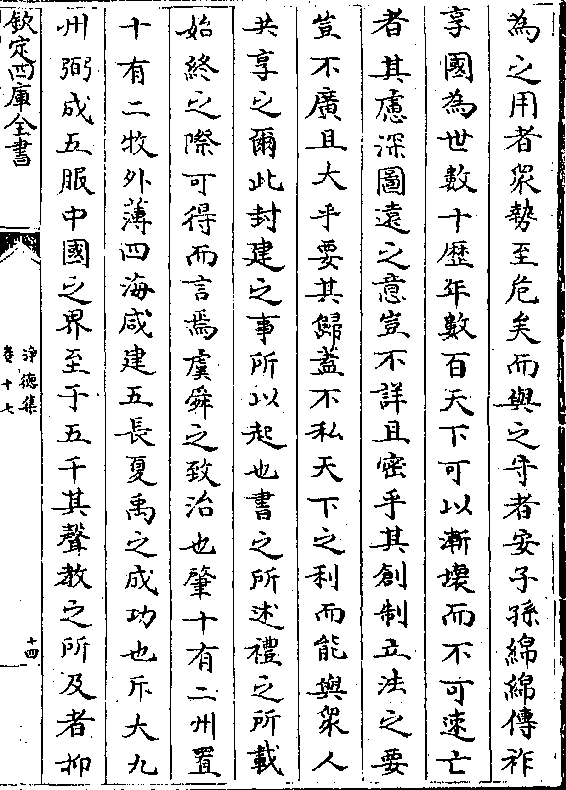 為之用者衆勢至危矣而與之守者安子孫綿綿傳祚
享國為世數十歷年數百天下可以漸壞而不可速亡
者其慮深圖遠之意豈不詳且密乎其創制立法之要
豈不廣且大乎要其歸蓋不私天下之利而能與衆人
共享之爾此封建之事所以起也書之所述禮之所載
始終之際可得而言焉虞舜之致治也肇十有二州置
十有二牧外薄四海咸建五長夏禹之成功也斥大九
州弼成五服中國之界至于五千其聲教之所及者抑
欽定四庫全書
淨德集
卷十七
十四